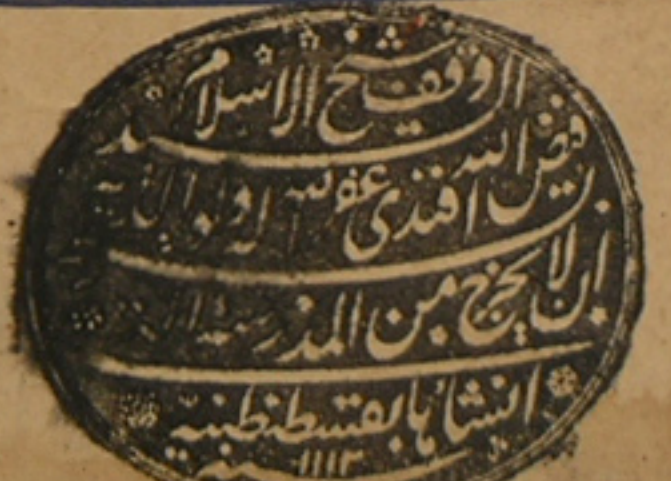 وقف شيخ الاسلام السيد
فيض الله افندى غفر الله له ولوالديه
ان لا يخرج من المدرسة التى
انشاها بقسطنطنية
سنه ١١١٢